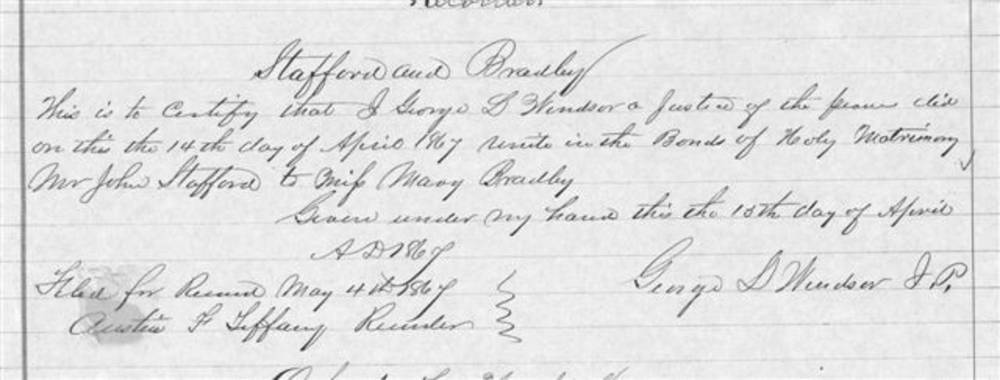 Recorder
Stafford and Bradley
This is to Certify that I George D Windsor a Justice of the peace did
on this the 14th day of April 1867 unite in the Bonds of Holy Matrimony
Mr John Stafford to Miss Mary Bradley
Given under my hand this the 15th day of April
A D 1867
George D Windsor J. P.
Filed for Record May 4th 1867
Austin F Tiffany Recorder